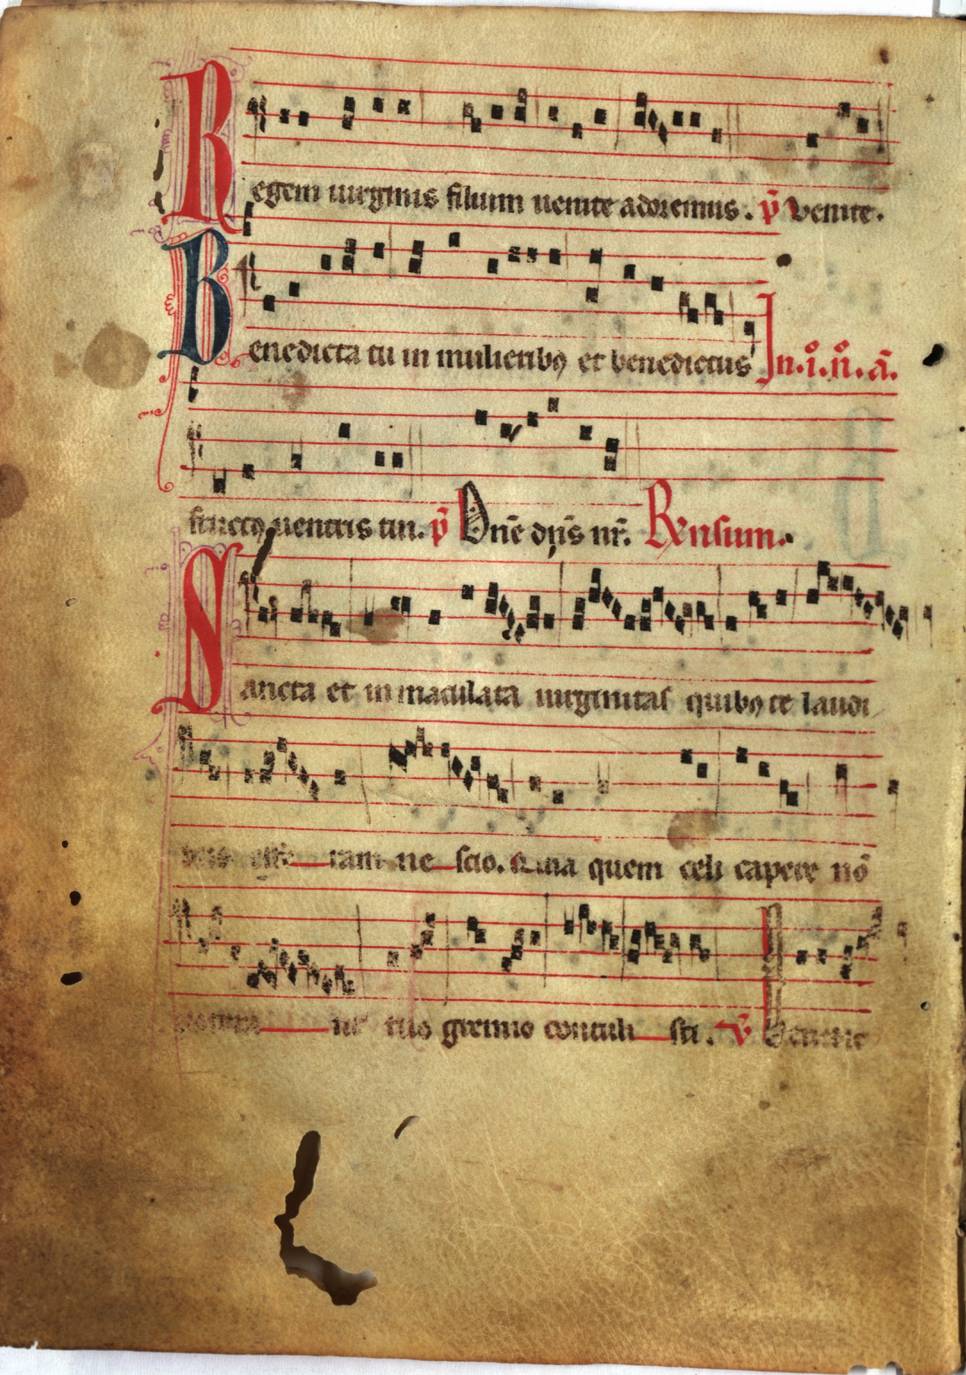 Regem uirginis filium uenite adoremus. p̄ Venite.
Benedicta tu in mulieribꝯ et benedictus In.i.n̊.a̅.
fructꝯ uentris tui. p̄ Dn̄e dn̄s nr̄. Respnsum.
Sancta et inmaculata uirginitas quibꝯ te laudi
bus effe ram ne scio. Quia quem celi capere nō
poterant tuo gremio contuli sti. ℣ Bene